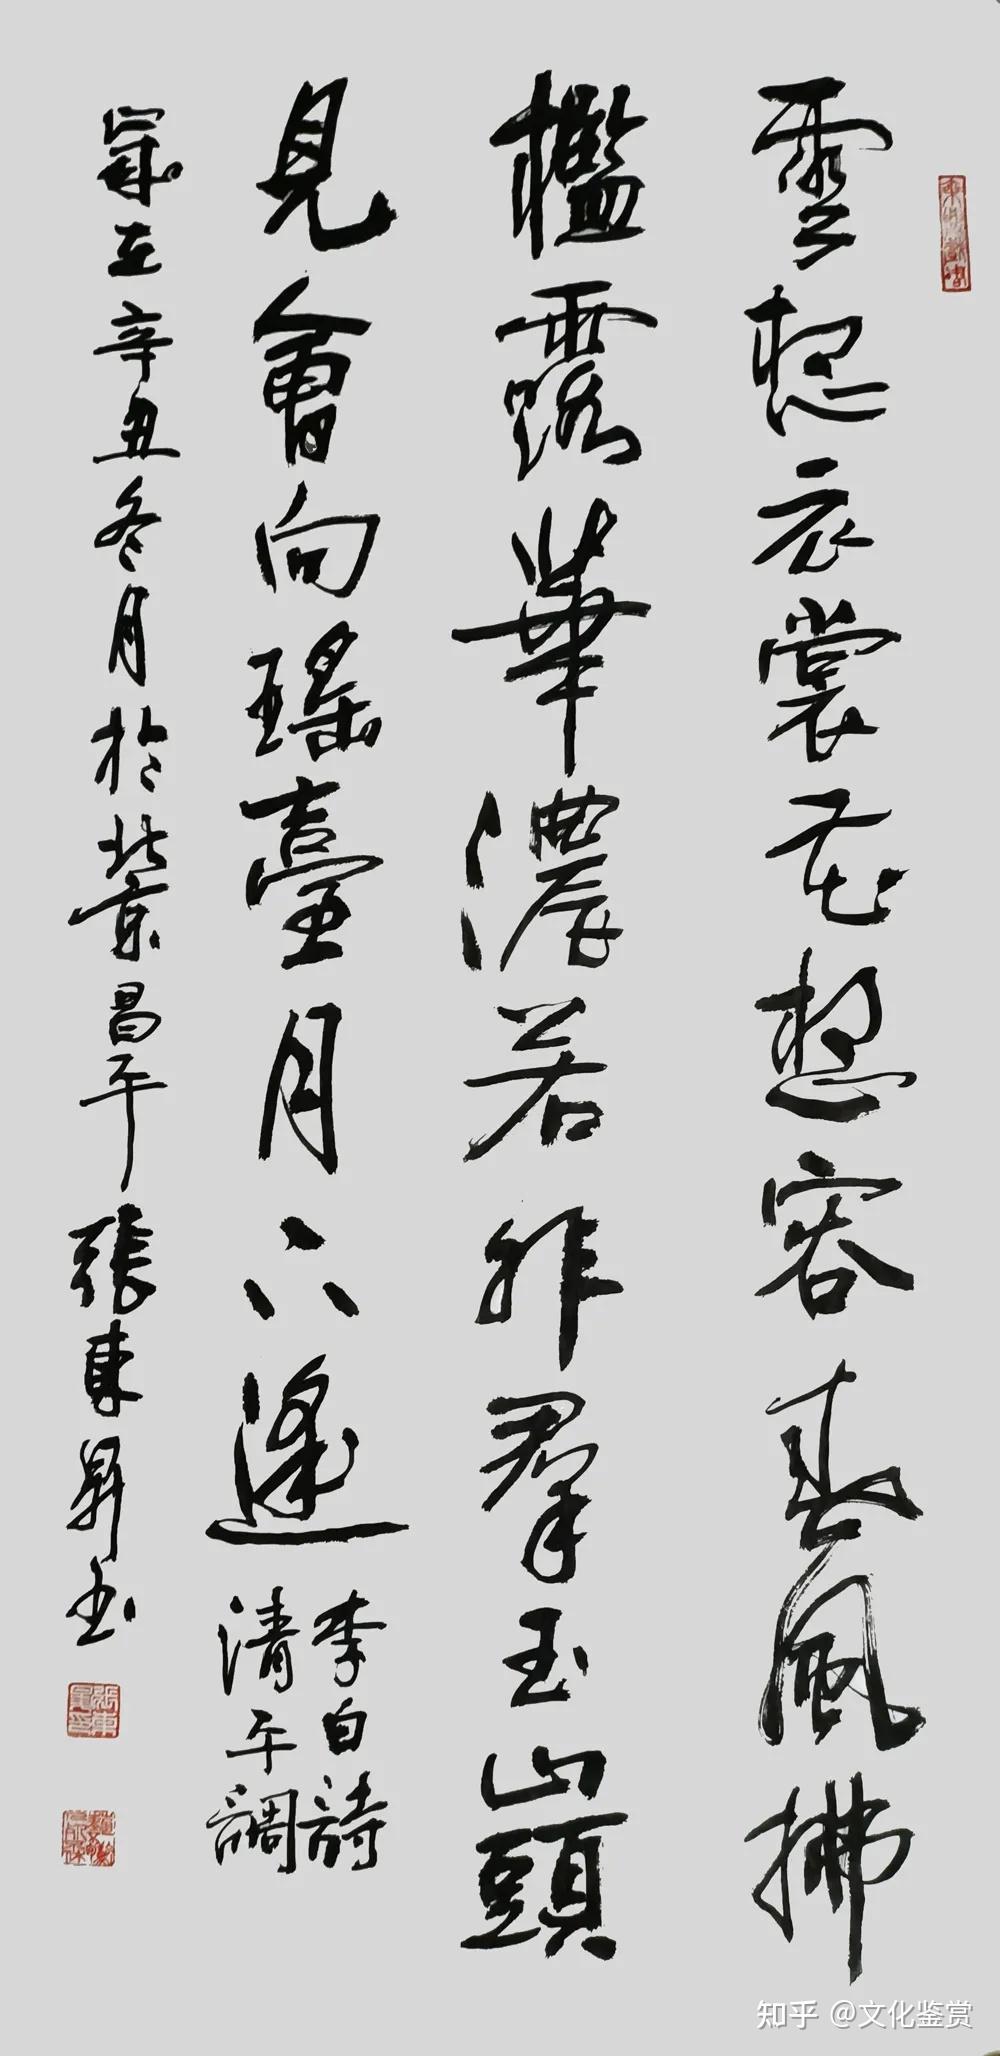 雲想衣裳花想容春風拂
檻露華濃若非羣玉山頭
見會向瑤臺月下逢
李白詩
清平調
歲在辛丑冬月於北京昌平張東昇書
知乎 @文化鉴赏